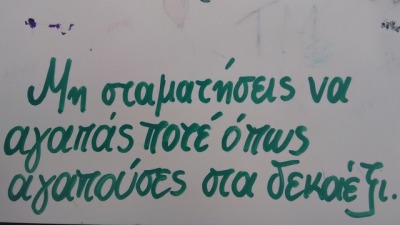 Μη σταματήσεις να
αγαπάς ποτέ όπως
αγαπούσες στα δεκαέξι.